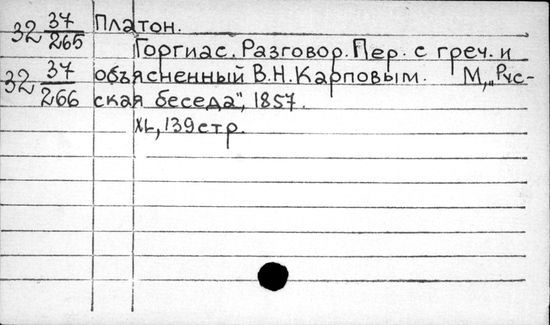 32 37/265 Платон.
Горгиас. Разговор. Пер. с греч. и
32 37/266 объясненный В.Н. Карповым. М, „Рус-
ская беседа", 1857.
XL, 139 стр.